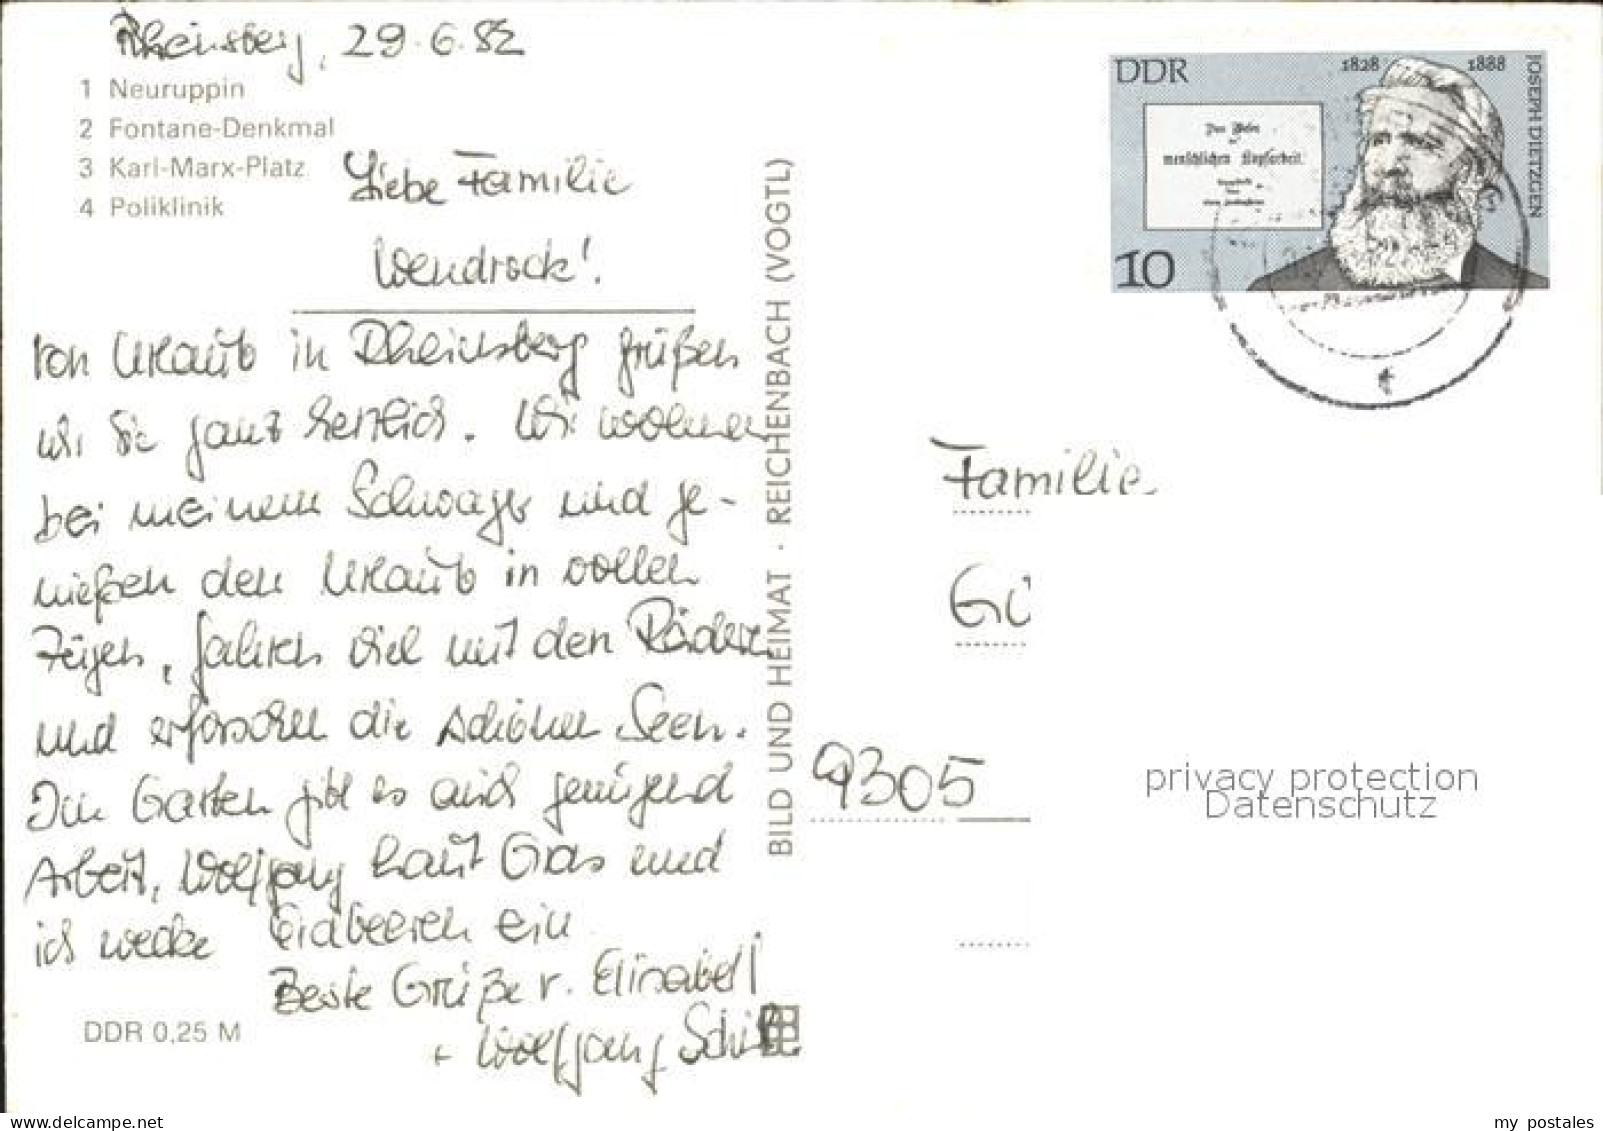 Rheinsberg, 29.6.82
1 Neuruppin
2 Fontane-Denkmal
3 Karl-Marx-Platz
4 Poliklinik
Liebe Familie
Wendrock!
von Urlaub in Rheinsberg grüßen
wir Sie ganz herzlich. Wir wohnen
bei meinem Schwager und ge-
nießen den Urlaub in vollen
Zügen, fahren viel mit den Rädern
und erforschen die schönen Seen.
Im Garten gibt es auch genügend
Arbeit, Wolfgang haut Gras und
ich wecke Erdbeeren ein
Beste Grüße v. Elisabeth
+ Wolfgang
DDR 0,25 M
BILD UND HEIMAT · REICHENBACH (VOGTL)
DDR
1828 1888
JOSEPH DIETZGEN
Das Wesen
der
menschlichen Kopfarbeit.
10
Familie
9305
privacy protection
Datenschutz
delcampe.net
my_postales